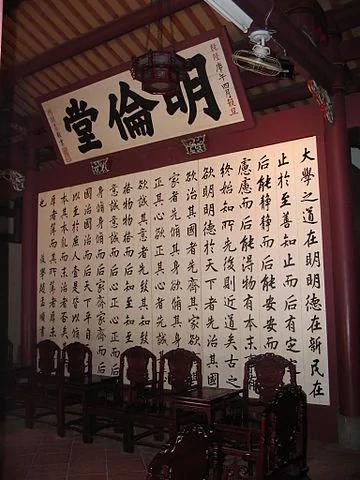 明倫堂
乾隆庚午四月穀旦
大學之道在明明德在新民在
止於至善知止而后有定
后能靜靜而后能安安而
慮慮而后能得物有本末
終始知所先後則近道矣古之
欲明明德於天下者先治其國
欲治其國者先齊其家欲
家者先脩其身欲脩其身
正其心欲正其心者先誠
欲誠其意者先致其知
格物物格而后知至知至而后
意誠意誠而后心正心正而后
身脩身脩而后家齊家齊而后
國治國治而后天下平自
以至於庶人壹是皆以脩
本其本亂而末治者否矣
厚者薄而其所薄者厚未
也 後學趙孟頫書